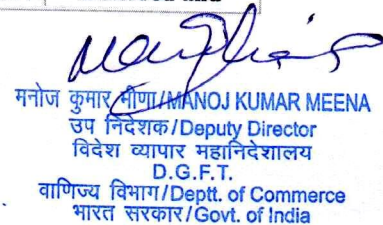 and
मनोज कुमार मीणा/MANOJ KUMAR MEENA
उप निदेशक/Deputy Director
विदेश व्यापार महानिदेशालय
D.G.F.T.
वाणिज्य विभाग/Deptt. of Commerce
भारत सरकार/Govt. of India